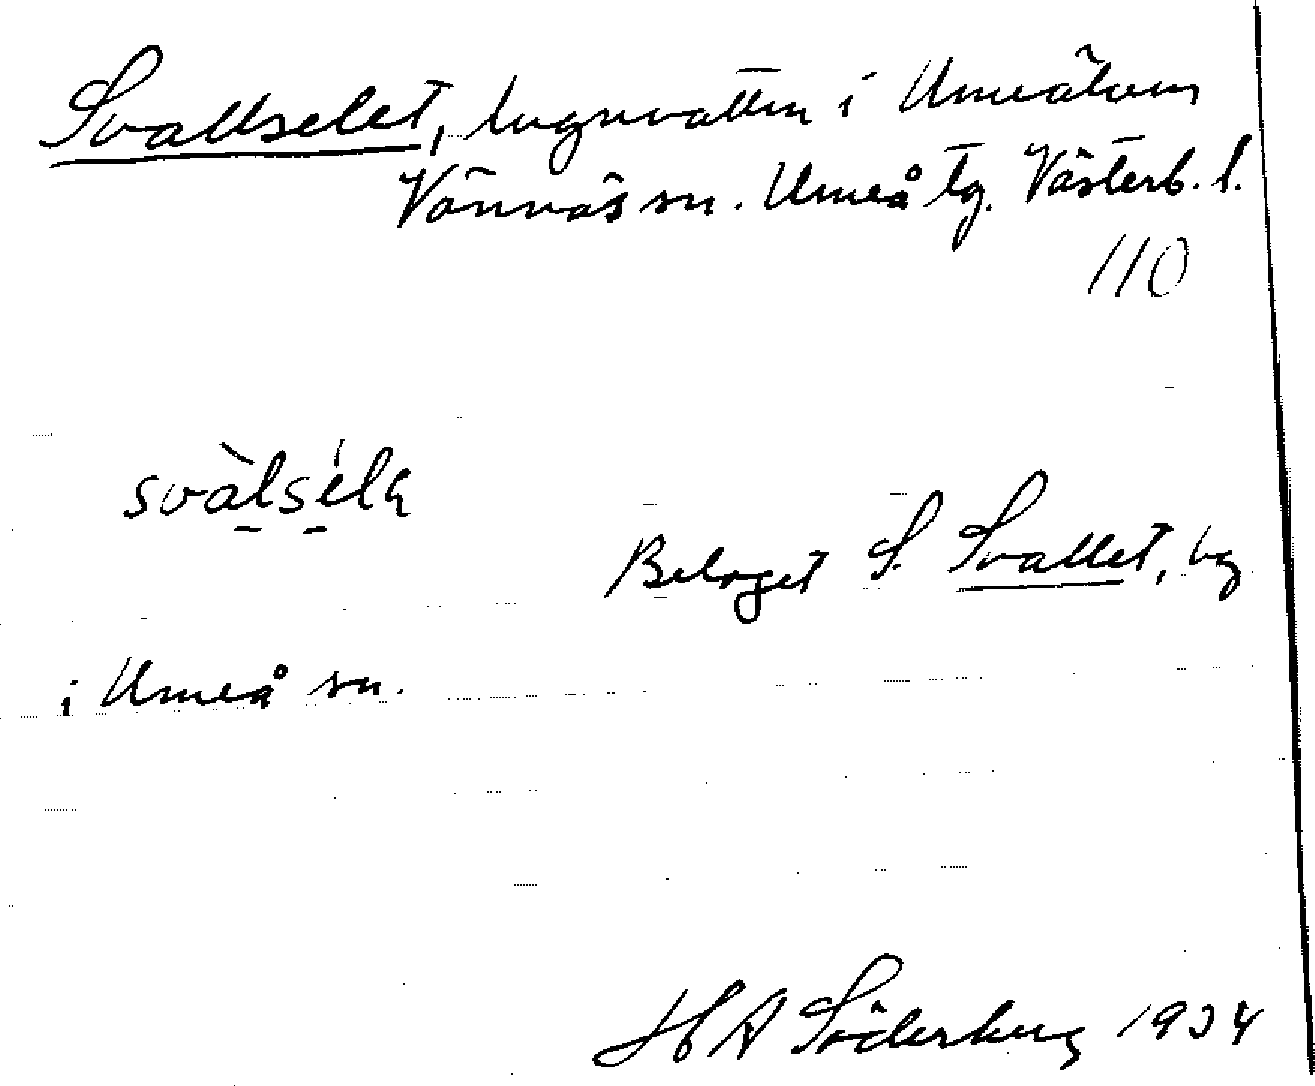 Svallselet, lugnvatten i Umeälven
Vännäs sn. Umeå tg. Västerb. l.
110
svàlsélą
Beläget S. Svallet, by
i Umeå sn.
H A Söderberg 1934